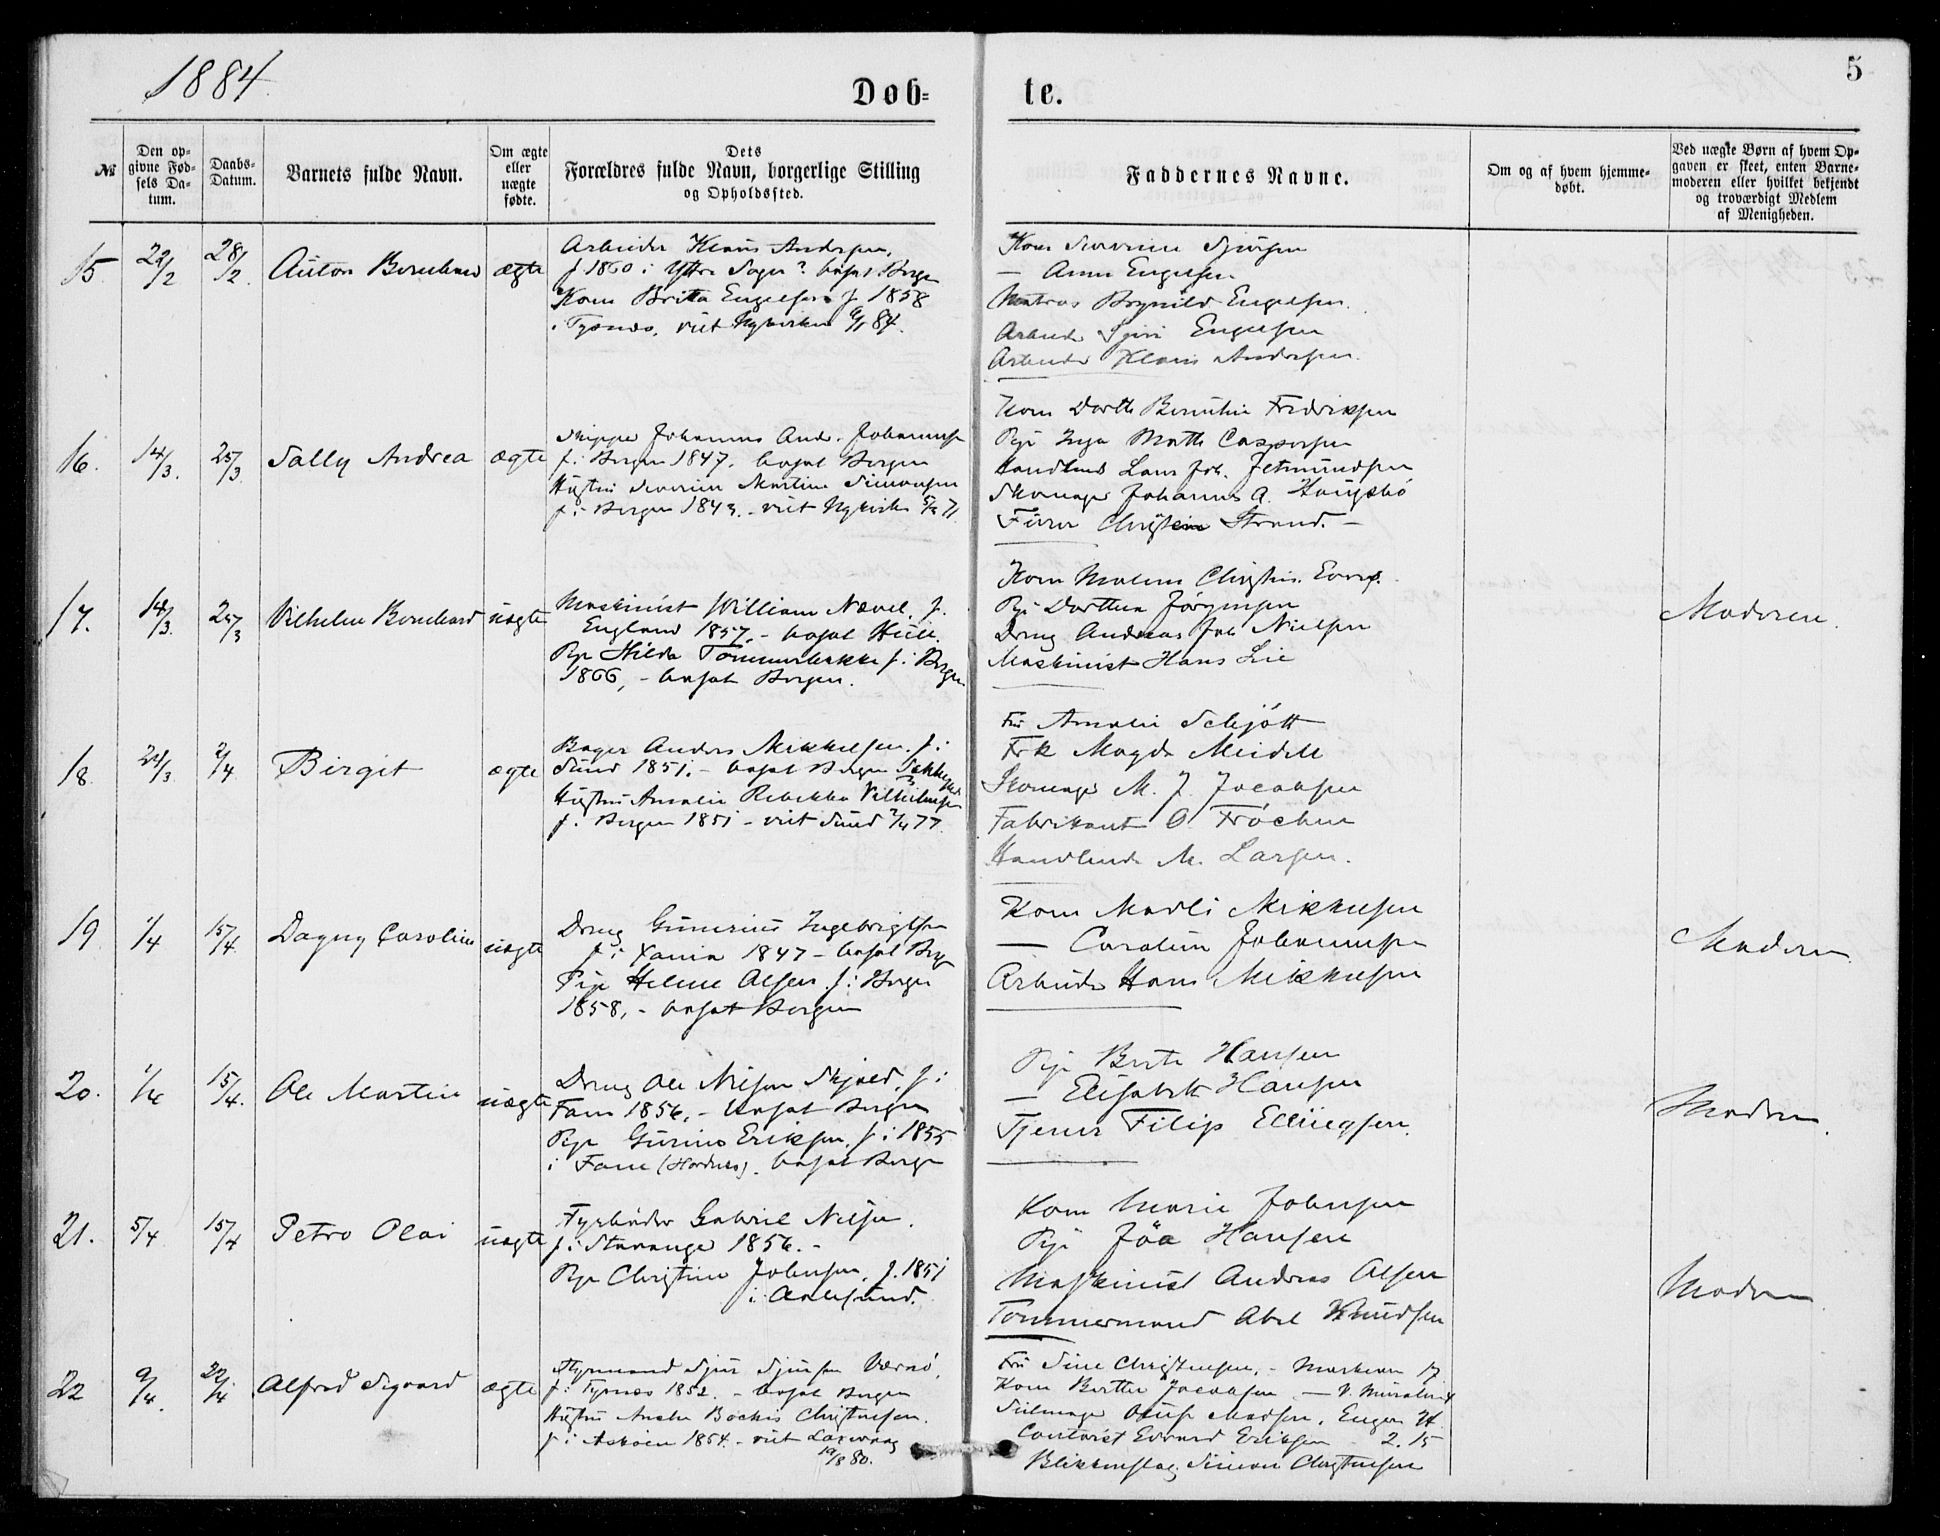 1884
5
Döb=
te.
№
Den op=
givne Fød=
sels Da=
tum.
Daabs=
Datum.
Barnets fulde Navn.
Om ægte
eller
uægte
fødte.
Dets
Forældres fulde Navn, borgerlige Stilling
og Opholdssted.
Faddernes Navne.
Om og af hvem hjemme=
døbt.
Ved uægte Børn af hvem Op=
gaven er skeet, enten Barne=
moderen eller hvilket bekjendt
og troværdigt Medlem
af Menigheden.
15 22/2 28/2 Anton Bernhard ægte
Arbeider Klaus Andersen,
f 1860 i Yttre Sogn? bosat Bergen
Kone Britta Engelsen f 1858
i Tysnæs. viet Nykirken 84.
Kone Severine Sjursen
— Anna Engelsen
Matros Brynild Engelsen
Arbeider Sjur Engelsen
Arbeider Klaus Andersen
16. 14/3. 25/3 Sally Andrea ægte
Skipper Johannes Andr. Johannesen
f. i Bergen 1847. bosat Bergen
Hustru Severine Martine Simonsen
f. i Bergen 1843. - viet Nykirken 71
Kone Dorth Berenthine Fredriksen
Pige Inga Marth Caspersen
Handlende Lars Joh. Jetmundsen
Skomager Johannes A. Haugsbö
Fürer Strand. —
17. 14/3. 25/3 Vilhelm Bernhard uægte
Maskinist William Nævel, f.
England 1857. - bosat Hull.
Pige Hilda Tømmerbakke f. i Bergen
1866, - bosat Bergen.
Kone Malene Christine
Pige Dorthea Jörgensen
Dreng Andreas Joh Nielsen
Maskinist Hans Lie
Moderen.
18. 24/3 2/4 Birgit ægte
Bager Anders Mikkelsen. f. i
Sund 1851. - bosat Bergen
Hustru Amalie Rebekka Vilhelmsen
f. i Bergen 1851 - viet Sund 77.
Fru Amalie Schjött
Frk Magda Meidell
Skomager M. J. Jacobsen
Fabrikant O. Fröchen
Handlende M. Larsen.
19 1/4 15/4. Dagny Caroline uægte
Dreng Gunerius Ingebrigtsen
f. i Xania 1847 - bosat Berg
Pige Helene Olsen f. i Bergen
1858, - bosat Bergen
Kone Marli Mikkelsen
— Caroline Johannesen
Arbeider Hans Mikkelsen
Moderen
20. 1/4 15/4. Ole Martin uægte
Dreng Ole Nilsen Skjold, f. i
Fane 1856, - bosat Bergen
Pige Gurine Eriksen, f. i 1855
i Fane (Hordnes). bosat Bergen
Pige Berte Hansen
— Elisabeth Hansen
Tjener Filip Ellingsen.
Moderen.
21. 5/4 15/4 Petro Olai uægte
Fyrbøder Gabriel Nilsen.
f. i Stavanger 1856. -
Pige Christine Johnsen, f. 1851
i Aalesund.
Kone Marie Johnsen
Pige Jöa Hansen
Maskinist Andreas Olsen
Tømmermand Abel Knudsen
Moderen
22 9/4. 22/4 Alfred Sigvard ægte
Styrmand Sjur Sjursen Værnö.
f. i Tysnes 1852. - bosat Bergen
Hustru Anche Böckis Christensen.
f. i Askøen 1854. - viet Laxevaag
19/8 80.
Fru Sine Christensen, - Markevei 17
Kone Berthe Jacobsen — V. Muralm. 4
Seilmager Madsen, Engen 24
Contorist Edvard Eriksen 2.15
Blikkenslag. Simon Christensen